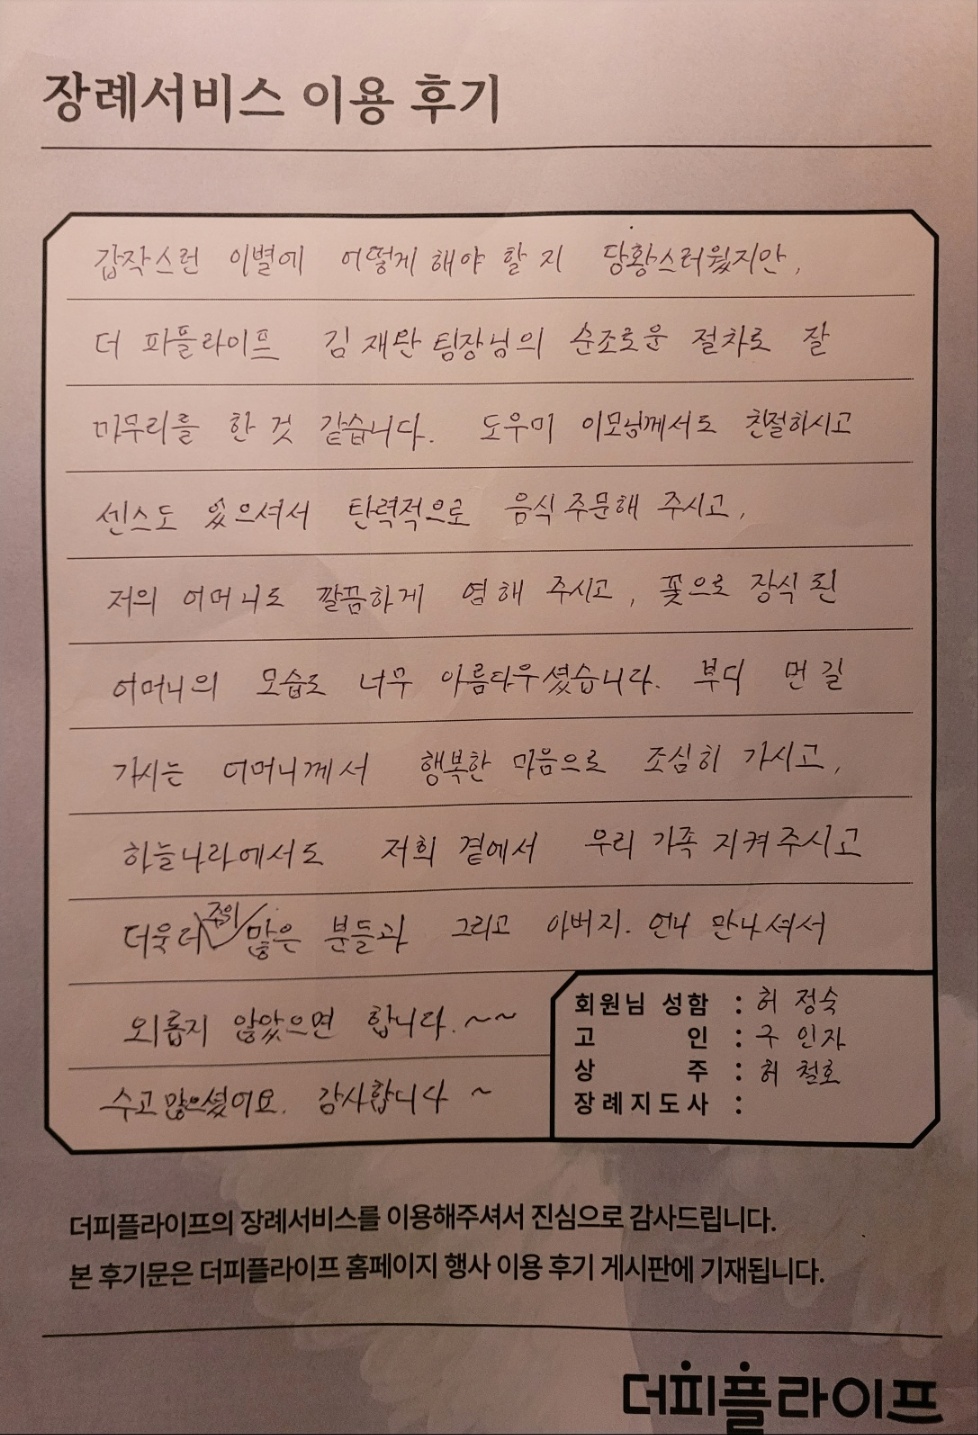 장례서비스 이용 후기
갑작스런 이별에 어떻게 해야 할 지 당황스러웠지만,
더 파플라이프 김재만 팀장님의 순조로운 절차로 잘
마무리를 한 것 같습니다. 도우미 이모님께서도 친절하시고
센스도 있으셔서 탄력적으로 음식 주문해 주시고,
저의 어머니도 깔끔하게 염해 주시고, 꽃으로 장식 된
어머니의 모습도 너무 아름다우셨습니다. 부디 먼 길
가시는 어머니께서 행복한 마음으로 조심히 가시고,
하늘나라에서도 저희 곁에서 우리 가족 지켜주시고
더욱 더 많은 분들과 그리고 아버지. 언니 만나셔서
외롭지 않았으면 합니다.~~
수고 많으셨어요. 감사합니다 ~
회원님 성함 : 허 정숙
고 인 : 구 인자
상 주 : 허 철호
장례지도사 :
더피플라이프의 장례서비스를 이용해주셔서 진심으로 감사드립니다.
본 후기문은 더피플라이프 홈페이지 행사 이용 후기 게시판에 기재됩니다.
더피플라이프